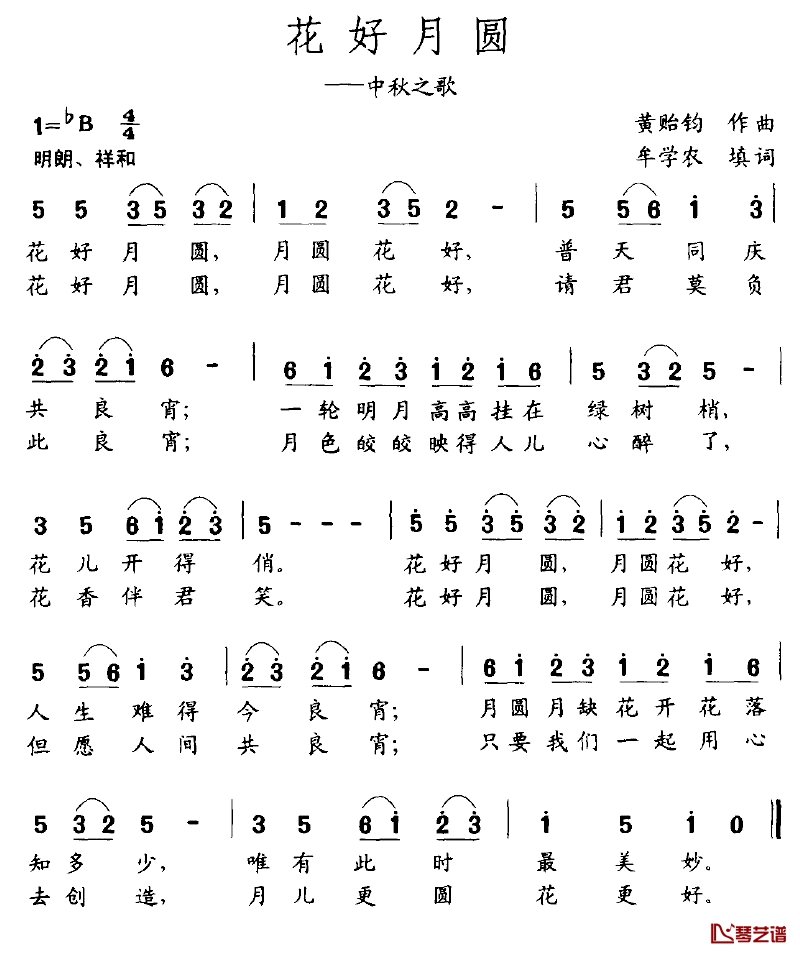 花好月圆
——中秋之歌
1=♭B 4/4
黄贻钧 作曲
明朗、祥和
牟学农 填词
5 5 3 5 3 2 | 1 2 3 5 2 - | 5 5 6 i 3̇
花 好 月 圆, 月 圆 花 好, 普 天 同 庆
花 好 月 圆, 月 圆 花 好, 请 君 莫 负
2̇ 3̇ 2̇ i 6 - | 6 i 2̇ 3̇ i 2̇ i 6 | 5 3 2 5 - |
共 良 宵; 一 轮 明 月 高 高 挂 在 绿 树 梢,
此 良 宵; 月 色 皎 皎 映 得 人 儿 心 醉 了,
3 5 6 i 2̇ 3̇ | 5 - - - | 5̇ 5̇ 3̇ 5̇ 3̇ 2̇ | i 2̇ 3̇ 5̇ 2̇ - |
花 儿 开 得 俏。 花 好 月 圆, 月 圆 花 好,
花 香 伴 君 笑。 花 好 月 圆, 月 圆 花 好,
5 5 6 i 3̇ | 2̇ 3̇ 2̇ i 6 - | 6 i 2̇ 3̇ i 2̇ i 6 |
人 生 难 得 今 良 宵; 月 圆 月 缺 花 开 花 落
但 愿 人 间 共 良 宵; 只 要 我 们 一 起 用 心
5 3 2 5 - | 3 5 6 i 2̇ 3̇ | i 5 i 0 ‖
知 多 少, 唯 有 此 时 最 美 妙。
去 创 造, 月 儿 更 圆 花 更 好。
琴艺谱